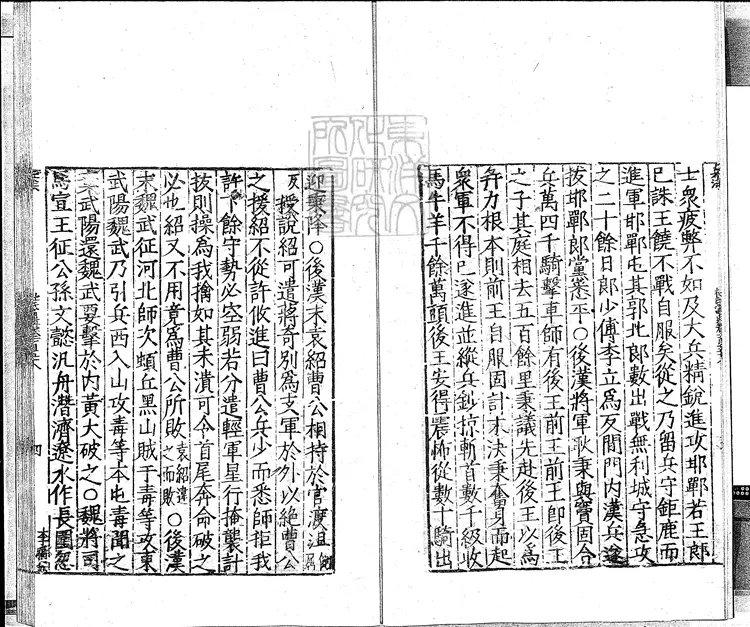 士衆疲弊不如及大兵精銳進攻邯鄲若王郎
已誅王饒不戰自服矣從之乃留兵守鉅鹿而
進軍邯鄲屯其郭北郎數出戰無利城守急攻
之二十餘日郎少傅李立爲反間開門內漢兵遂
拔邯鄲郎黨悉平○後漢將軍耿秉與竇固合
兵萬四千騎擊車師有後王前王前王即後王
之子其庭相去五百餘里秉議先赴後王以爲
并力根本則前王自服固計未決秉奮身而起
衆軍不得已遂進並縱兵鈔掠斬首數千級收
馬牛羊十餘萬頭後王安得震怖從數十騎出
迎秉降○後漢末袁紹曹公相持於官渡沮
授說紹可遣將奇別爲支軍於外以絶曹公
之援紹不從許攸進曰曹公兵少而悉師拒我
許下餘守勢必空弱若分遣輕軍星行掩襲許
拔則操爲我擒如其未潰可令首尾奔命破之
必也紹又不用竟爲曹公所敗袁紹違之而敗○後漢
末魏武征河北師次頓丘黑山賊于毒等攻東
武陽魏武乃引兵西入山攻毒等本屯毒聞之
棄武陽還魏武要擊於內黃大破之○魏將司
馬宣王征公孫文懿汎舟潛濟遼水作長圍忽
四